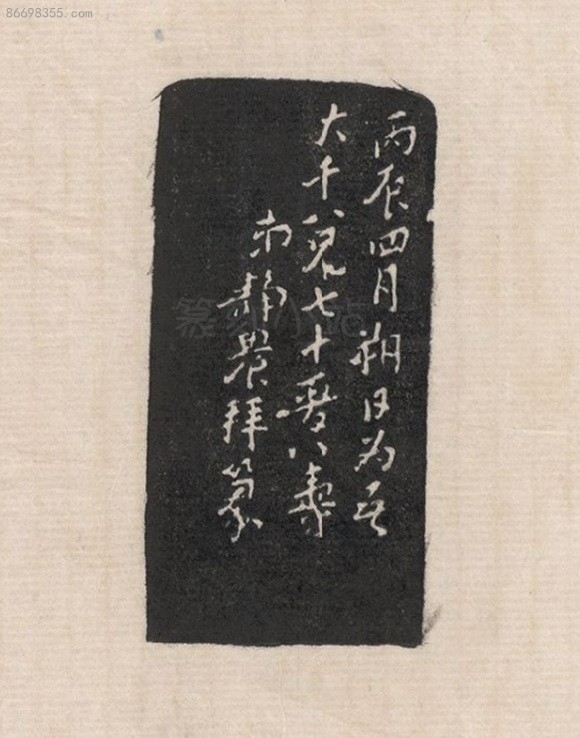 86698355.com
丙辰四月朔日为吾
大千兄七十晋八壽
弟靜農拜篆
篆刻小站